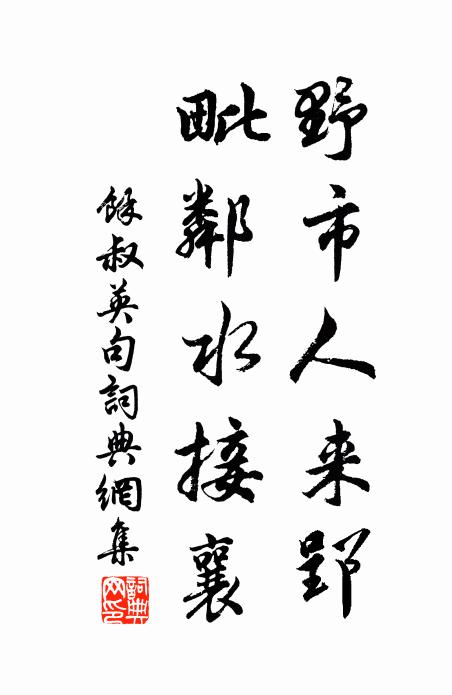 野市人来郢
毗鄰水接襄
餘叔英句詞典網集
詞典
网印